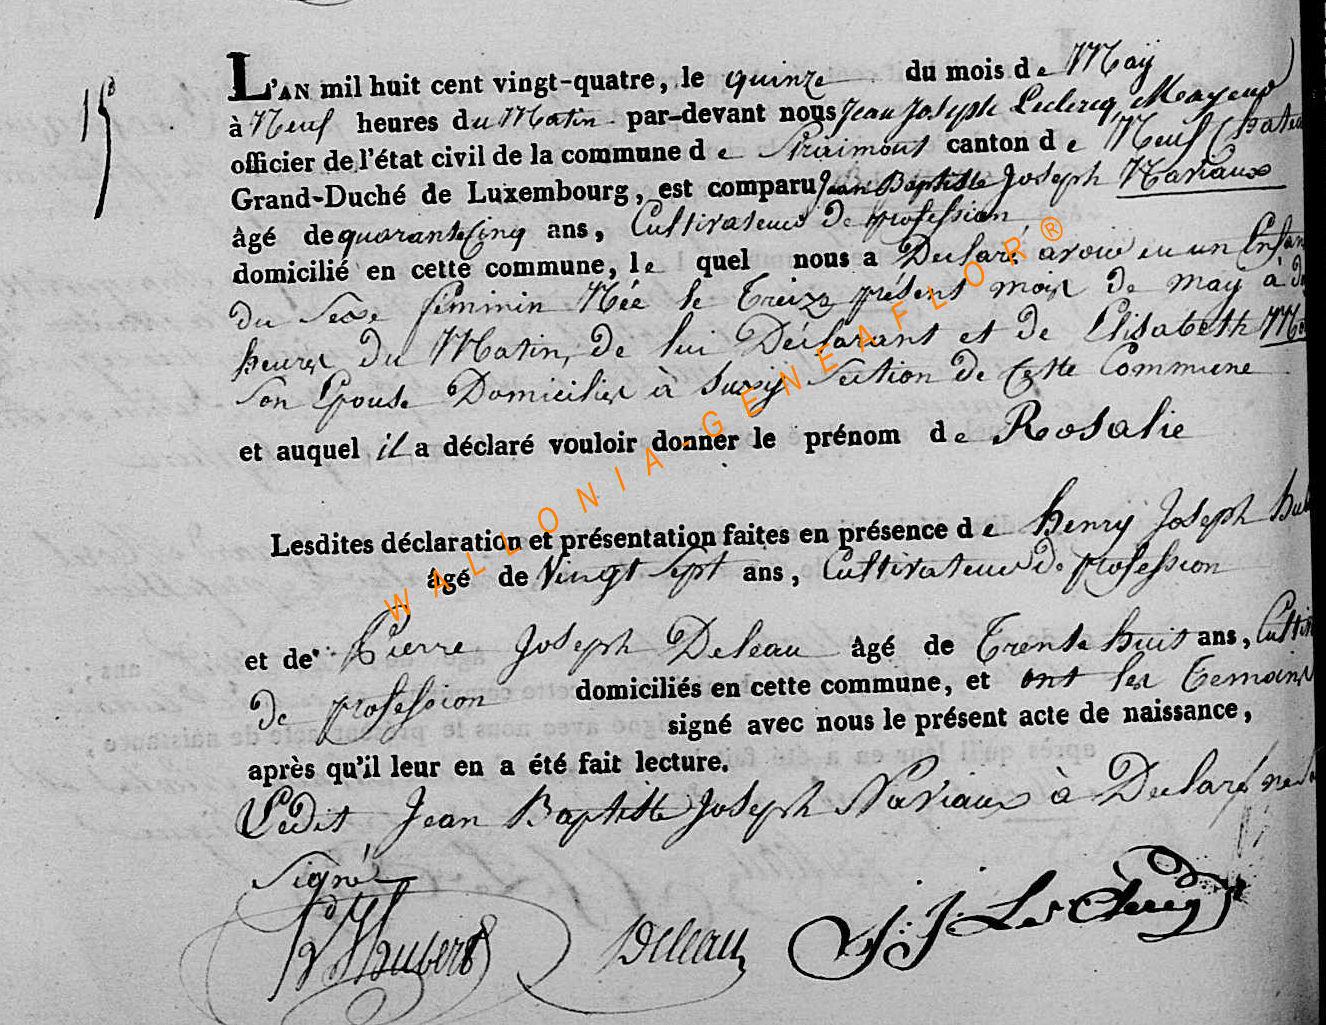 15
L'AN mil huit cent vingt-quatre, le quinze du mois de May
à Neuf heures du Matin par-devant nous Jean Joseph Leclercq, Mayeur
officier de l'état civil de la commune de Straimont canton de Neuf Chatea
Grand-Duché de Luxembourg, est comparu Jean Baptiste Joseph Naviaux
âgé de quarante Cinq ans, Cultivateur De profession
domicilié en cette commune, le quel nous a Declaré avoir eu un Enfan
du Sexe féminin Née le Treize présent mois de may à
heures du Matin, de lui Déclarant et de Elisabeth
Son Epouse Domiciliés à Suxy Section de Cette Commune
et auquel il a déclaré vouloir donner le prénom de Rosalie
Lesdites déclaration et présentation faites en présence de Henry Joseph Hub
âgé de Vingt Sept ans, Cultivateur De profession
et de Pierre Joseph Deleau âgé de Trente huit ans, Cultiv
de profession domiciliés en cette commune, et ont les temoins
signé avec nous le présent acte de naissance,
après qu'il leur en a été fait lecture.
Ledit Jean Baptiste Joseph Naviaux à Declaré ne
Signé
Hubert Deleau J. J. LeClercq
WALLONIA-GENEAFLOR®